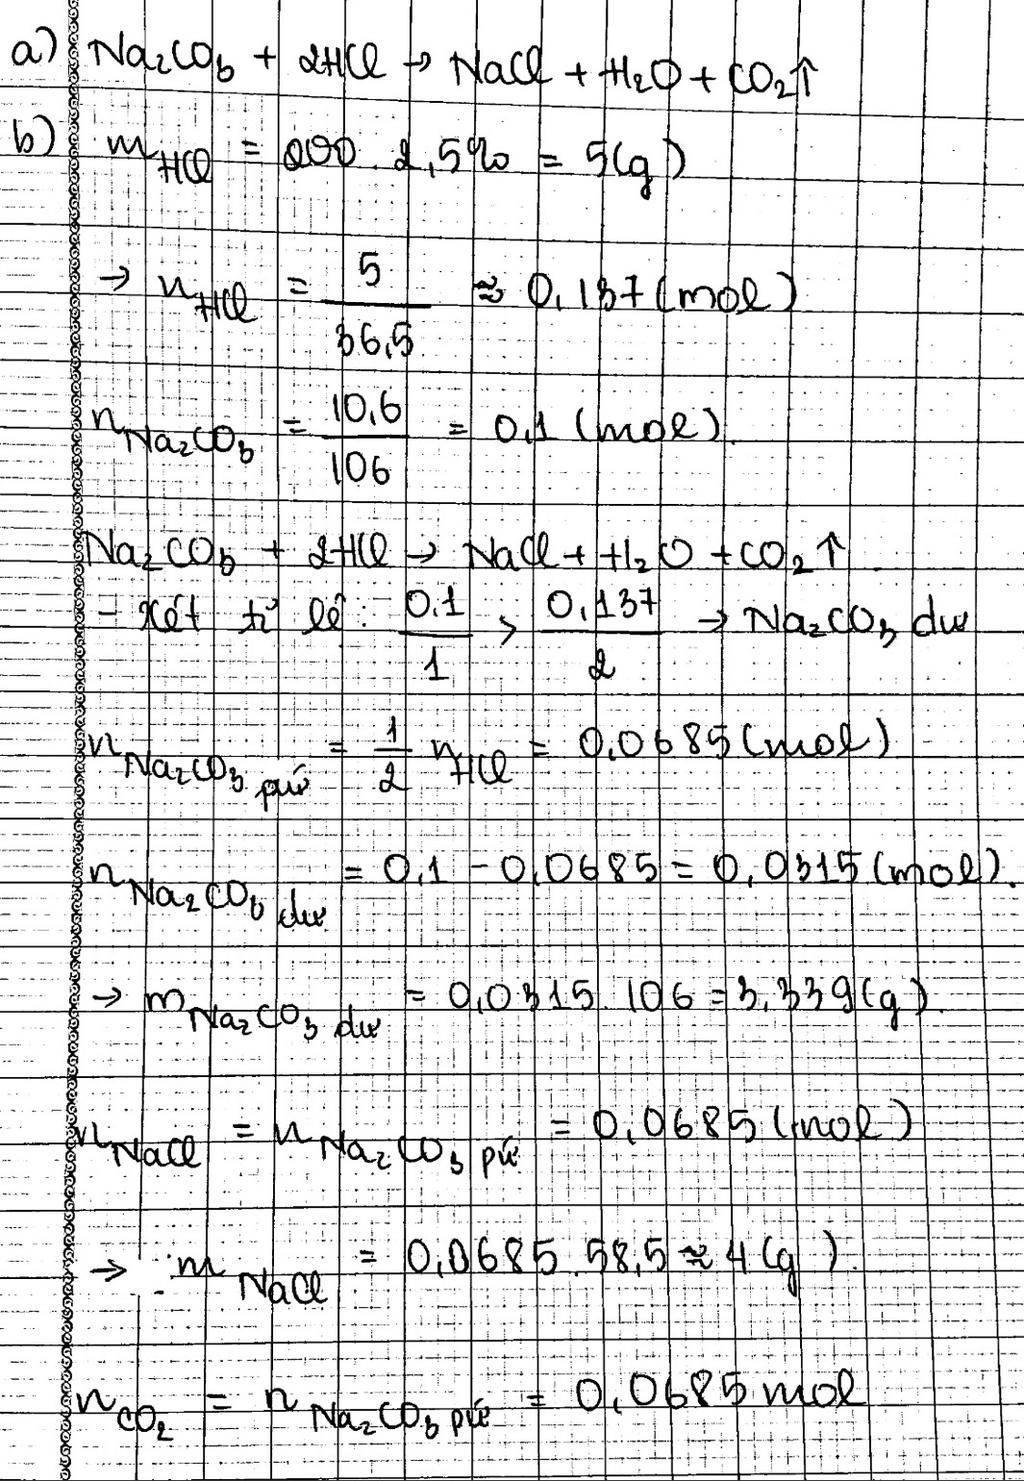 a) Na₂CO₃ + 2HCl → NaCl + H₂O + CO₂↑
b) m_HCl = 200 . 2,5% = 5(g)
→ n_HCl = 5/36,5 ≈ 0,137 (mol)
n_Na₂CO₃ = 10,6/106 = 0,1 (mol).
Na₂CO₃ + 2HCl → NaCl + H₂O + CO₂↑
- Xét tỉ lệ: 0,1/1 > 0,137/2 → Na₂CO₃ dư
n_Na₂CO₃ pứ = 1/2 n_HCl = 0,0685 (mol)
n_Na₂CO₃ dư = 0,1 - 0,0685 = 0,0315 (mol).
→ m_Na₂CO₃ dư = 0,0315 . 106 = 3,339 (g).
n_NaCl = n_Na₂CO₃ pứ = 0,0685 (mol)
→ m_NaCl = 0,0685 . 58,5 ≈ 4 (g).
n_CO₂ = n_Na₂CO₃ pứ = 0,0685 mol